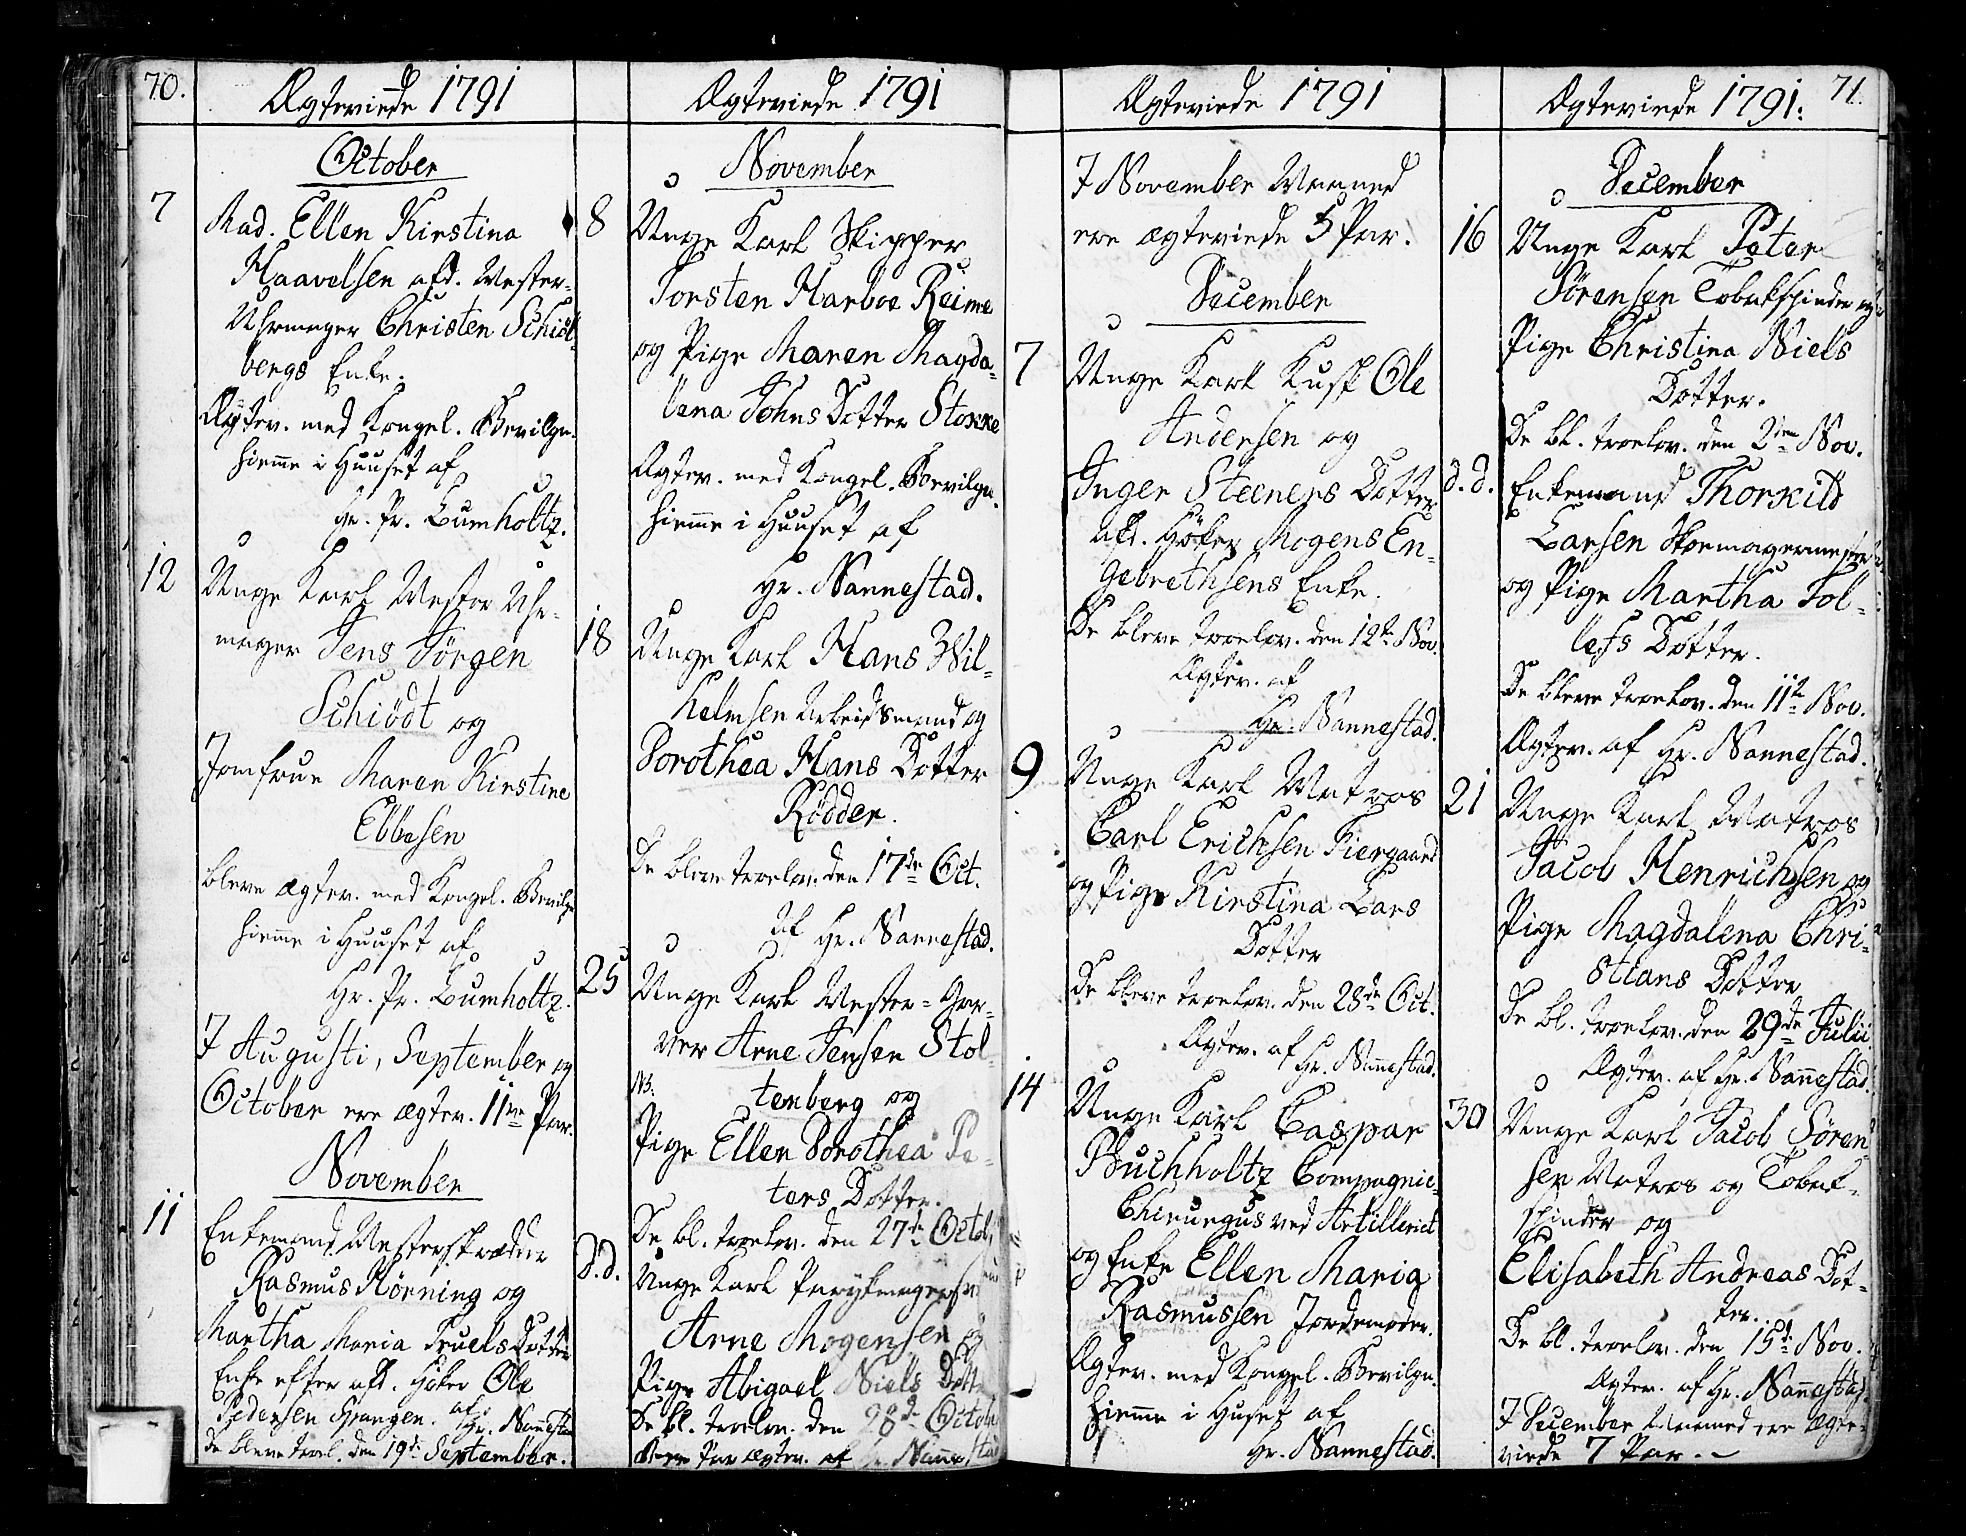 70.
Ægteviede 1791
October
7
Mad. Ellen Kirstina
Haavelsen afd. Mester-
Uhrmager Christen Schiöt-
bergs Enke.
Ægtev. med Kongel. Bevilgn.
hiemme i Huuset af
Hr. Pr. Lumholtz.
12
Unge Karl Mester Uhr-
mager Jens Jörgen
Schiödt og
Jomfrue Maren Kirstine
Ebbesen
bleve ægtev. med Kongel. Bevilgn
hiemme i Huuset af
Hr. Pr. Lumholtz.
I Augusti, September og
October ere ægtev. 11ve Par.
November
11
Enkemand Mesterskrædder
Rasmus Hörning og
Martha Maria Truels Dotter
Enke efter afd. Höker Ole
Pedersen Spangen. af Hr. Nannestad
De bleve troel. den 19de September.
Ægteviede 1791
November
8
Unge Karl Skipper
Torsten Harboe Reime
og Pige Maren Magda-
lena Johns Dotter Storke
Ægtev. med Kongel. Bevilgn.
hiemme i Huuset af
Hr. Nannestad.
18
Unge Karl Hans Wil-
helmsen Arbeidsmand og
Dorothea Hans Dotter
Rödder.
De bleve troelov. den 17de Oct.
Af Hr. Nannestad.
25
Unge Karl Mester-Gar-
ver Arne Jensen Stol-
NB. tenberg og
Pige Ellen Dorothea Pe-
ters Dotter.
De bl. troelov. den 27de Octob.
d.d.
Unge Karl Parykmagersv
Arne Mogensen og
Pige Abigael Niels Dotte
De bl. troelov. den 28de Octobe
Par ægtev. af Hr. Nannestad
Ægteviede 1791
I November Maaned
ere ægteviede 5 Par.
December
7
Unge Karl Kusk Ole
Andersen og
Inger Steeners Dotter
Afd. Höker Mogens En-
gebrethsens Enke.
De bleve troelov. den 12te Nov.
Ægtev. af
Hr. Nannestad.
9
Unge Karl Matros
Carl Erichsen Fiergaard
og Pige Kirstina Lars
Dotter
De bleve troelov. den 28de Oct.
Ægtev. af Hr. Nannestad.
14
Unge Karl Caspar
Buchholtz Compagnie-
Chirurgus ved Artilleriet
og Enke Ellen Maria
Rasmussen Jordemoder.
Ægtev. med Kongel. Bevilgn.
hiemme i Huset af
Hr. Nannestad.
71.
Ægteviede 1791.
December
16
Unge Karl Peter
Sörensen Tobakspinder og
Pige Christina Niels
Dotter.
De bl. troelov. den 2den Nov.
d.d.
Enkemand Thorkild
Larsen Skomagermester
og Pige Martha Tol-
lefs Dotter.
De bleve troelov. den 11te Nov.
Ægtev. af Hr. Nannestad.
21
Unge Karl Matros
Jacob Henrichsen og
Pige Magdalena Chri-
stians Dotter
De bl. troelov. den 29de Julii
Ægtev. af Hr. Nannestad.
30
Unge Karl Jacob Sören-
sen Matros og Tobak-
spinder og
Elisabeth Andreas Dot-
ter.
De bl. troelov. den 15de Nov.
Ægtev. af Hr. Nannestad.
I December Maaned ere ægte-
viede 7 Par.